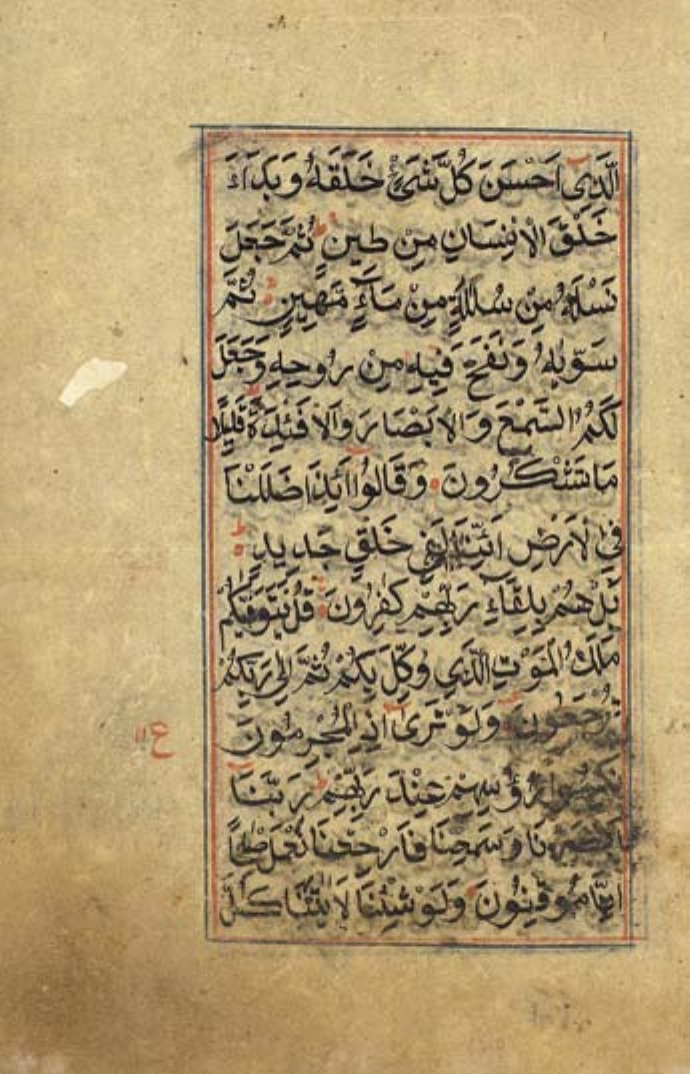 الَّذِي اَحْسَنَ كُلَّ شَيْءٍ خَلَقَهُ وَبَدَاَ
خَلْقَ الْاِنْسَانِ مِنْ طِينٍ ثُمَّ جَعَلَ
نَسْلَهُ مِنْ سُلٰلَةٍ مِنْ مَاءٍ مَهِينٍ ثُمَّ
سَوّٰيهُ وَنَفَخَ فِيهِ مِنْ رُوحِهِ وَجَعَلَ
لَكُمُ السَّمْعَ وَالْاَبْصَارَ وَالْاَفْئِدَةَ قَلِيلًا
مَا تَشْكُرُونَ وَقَالُوا ءَاِذَا ضَلَلْنَا
فِي الْاَرْضِ اَئِنَّا لَفِي خَلْقٍ جَدِيدٍ
بَلْ هُمْ بِلِقَاءِ رَبِّهِمْ كٰفِرُونَ قُلْ يَتَوَفّٰيكُمْ
مَلَكُ الْمَوْتِ الَّذِي وُكِّلَ بِكُمْ ثُمَّ اِلٰى رَبِّكُمْ
تُرْجَعُونَ وَلَوْ تَرٰى اِذِ الْمُجْرِمُونَ
نَاكِسُوا رُؤُسِهِمْ عِنْدَ رَبِّهِمْ رَبَّنَا
اَبْصَرْنَا وَسَمِعْنَا فَارْجِعْنَا نَعْمَلْ صٰلِحًا
اِنَّا مُوقِنُونَ وَلَوْ شِئْنَا لَاٰتَيْنَا كُلَّ
ع